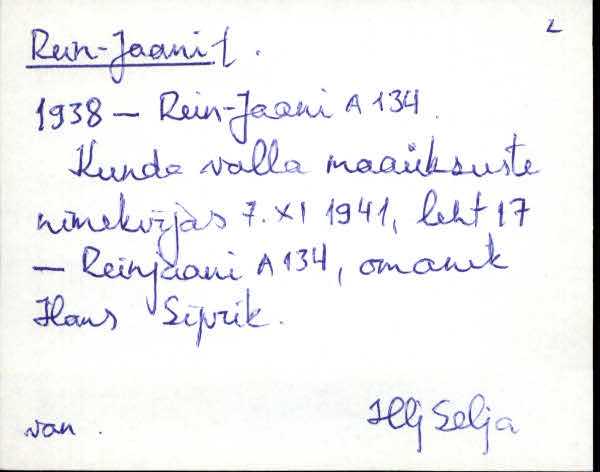 2
Rein-Jaani t.
1938 – Rein-Jaani A 134.
Kunda valla maaüksuste
nimekirjas 7. XI 1941, leht 17
– Reinjaani A 134, omanik
Hans Siprik.
Hlj Selja
van.